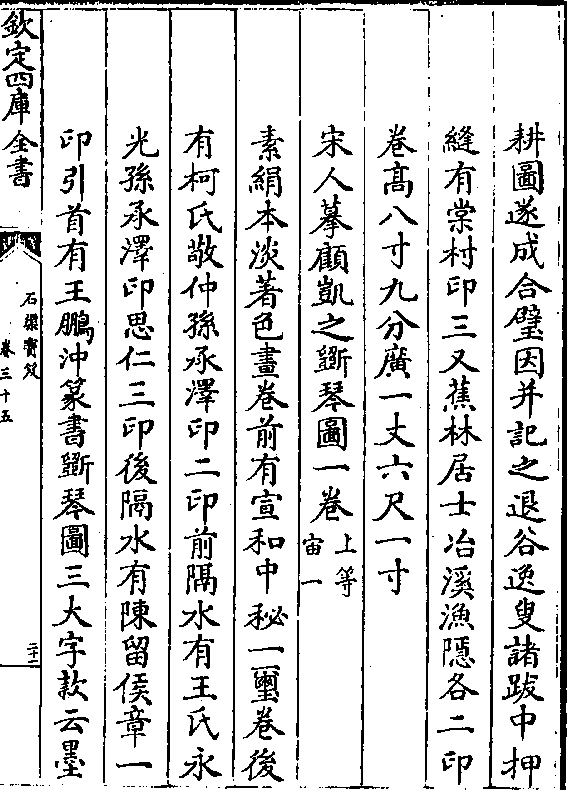 耕圖遂成合璧因并記之退谷逸叟諸跋中押
縫有棠村印三又蕉林居士冶溪漁隱各二印
卷高八寸九分廣一丈六尺一寸
宋人摹顧凱之斲琴圖一卷 上等 宙一
素絹本淡著色畫卷前有宣和中秘一璽卷後
有柯氏敬仲孫承澤印二印前隔水有王氏永
光孫承澤印思仁三印後隔水有陳留侯章一
印引首有王鵬沖篆書斲琴圖三大字款云墨
欽定四庫全書
石渠寶笈
卷三十五
二十二